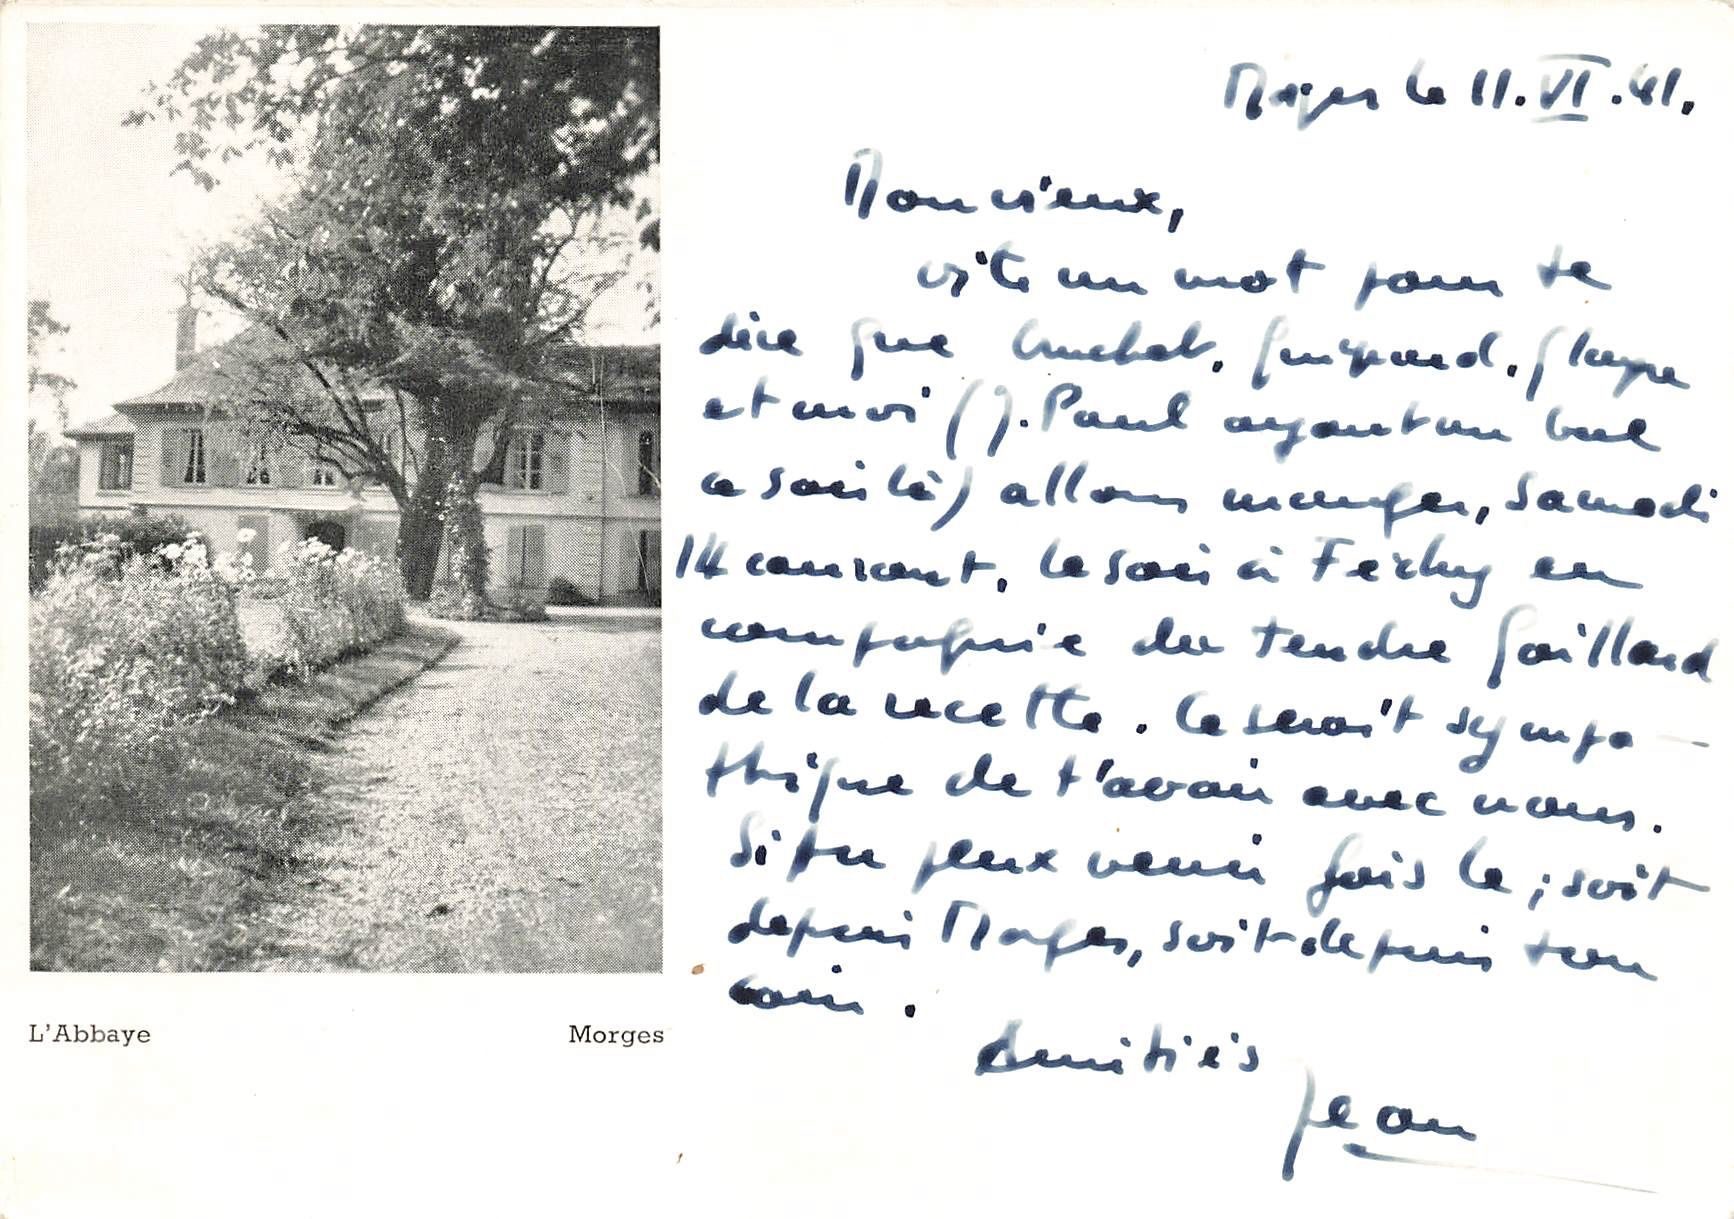 Morges le 11.VI.41.
Mon vieux,
vite un mot pour te
dire que Cruchet, Guignard,
et moi (J. Paul ayant un bal
ce soir là) allons manger, samedi
14 courant, le soir à Féchy en
compagnie du tendre Gaillard
de la recette. Ce serait sympa-
thique de t'avoir avec nous.
Si tu peux venir fais le ; soit
depuis Morges, soit depuis ton
coin.
Amitiés
Jean
L'Abbaye
Morges